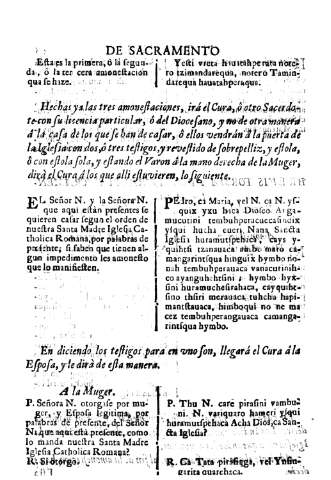 DE SACRAMENTO
Esta es la primera, ó la segun-
da, ó la ter cera amonestacion
que se hize.
Yesti vreta hauatahperata note-
ro tzimandarequa, notero Tamin-
darequa hauatahperaqua.
Hechas ya las tres amonestaciones, irá el Cura, ó otro Sacerdo-
te con su licencia particular, ó del Diocesano, y no de otra manera
á la casa de los que se han de casar, ó ellos vendrán á la puerta de
la Iglesia con dos, ó tres testigos, y revestido de sobrepelliz, y estola,
ó con estola sola, y estando el Varon á la mano derecha de la Muger,
dirá el Cura á los que alli estuvieren, lo siguiente.
EL Señor N. y la Señora N.
que aqui están presentes se
quieren casar segun el orden de
nuestra Santa Madre Iglesia Ca-
tholica Romana, por palabras de
presente, si saben que tienen al-
gun impedimento les amonesto
que lo manifiesten.
PEdro, ca Maria, vel N. ca N. ys-
quix yxu hica Dioseo Arga-
mucurini tembuhperacuecaeuhcà
yſqui hucha cuerì Nana Sancta
Iglesia huramutspehìcè, cays y-
mangarintſqua hinguix hymbo
nah tembuhperauaca
co ayanguhchtſini hymbo hyx-
ſini huramucheſirahaca, cayquihtſe-
sino thſiri merauaca tuhcha hapi-
manſtauaca, himboqui no ne ma
cez tembuhperangauaca camanga-
rintſqua hymbo.
En diciendo los testigos para en vno son, llegará el Cura á la
Esposa, y le dirá de esta manera.
A la Muger.
P. Señora N. otorgase por mu-
ger, y Esposa legitima, por
palabras de presente, del Señor
N. que aqui està presente, como
lo manda nuestra Santa Madre
Iglesia Catholica Romana?
R. Si otorgo.
P. Thu N. carè pirasini vambu-
ni. N. variquaro hameri yſqui
huramuspehaca Acha Dios, ca San-
cta Iglesia?
R. Ca Tata piraſinga, vel Ynſun-
garita quarchaca.